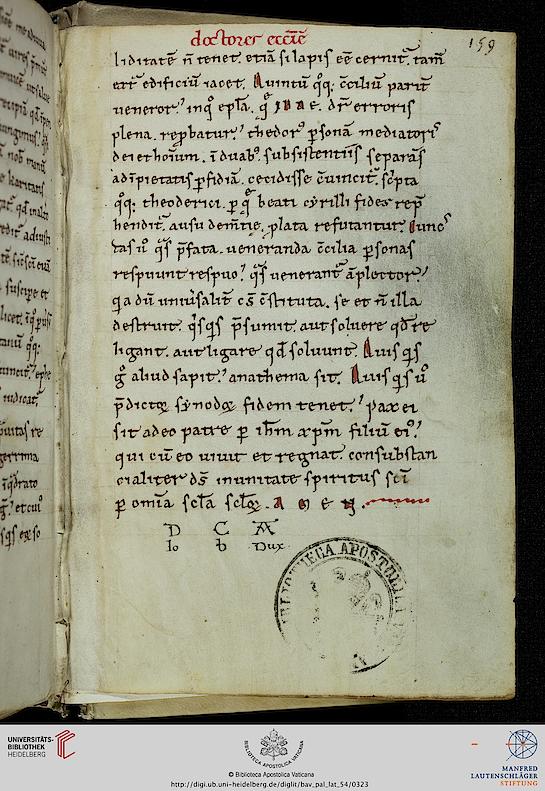 doctores eccłiē
159
liditatē ñ tenet. etiā si lapis eē cernit̃. tam̃
extr̃ edificiū iacet. Quintū q̨q; c̄ciliū parit̃
ueneror. inq̊ epła. q̃ dr̃ erroris
plena. rep̱batur. thedor᷒ p̱sonā mediatoris
dei et hoīum. ī duab᷒ subsistentiis separās
ad īpietatis p̱fidiā. cecidisse c̄uincit̃. sc̃pta
q̨q; theoderici. p̱ q̃ beati cyrilli fides rep̃
hendit̃. ausu dem̄tie. plata refutantur. Cunc
tas ũ q̃s p̃fata. ueneranda c̄cilia p̱sonas
respuunt respuo. q̃s uenerant̃ āplector.
q̨a dū uniũsalit̃ cs̄ c̄stituta. se et ñ illa
destruit. q̇sq̇s p̃sumit. aut soluere qđ re
ligant. aut ligare qđ soluunt. Quisq̇s
g̊ aliud sapit. anathema sit. Quisq̇s ũ
p̃dictoꝝ synodoꝝ fidem tenet. pax ei
sit a deo patre p̱ ih̄m xp̄m filiū ei᷒.
qui cū eo uiuit et regnat. consubstan
cialiter d̄s in unitate spiritus sc̄i
p̱ omīa scła scłoꝝ. A M E N.
D C
Io b Dux
BIBLIOTHECA APOSTOLICA
UNIVERSITÄTS-
BIBLIOTHEK
HEIDELBERG
BIBLIOTHECA APOSTOLICA VATICANA
© Biblioteca Apostolica Vaticana
http://digi.ub.uni-heidelberg.de/diglit/bav_pal_lat_54/0323
MANFRED
LAUTENSCHLÄGER
STIFTUNG